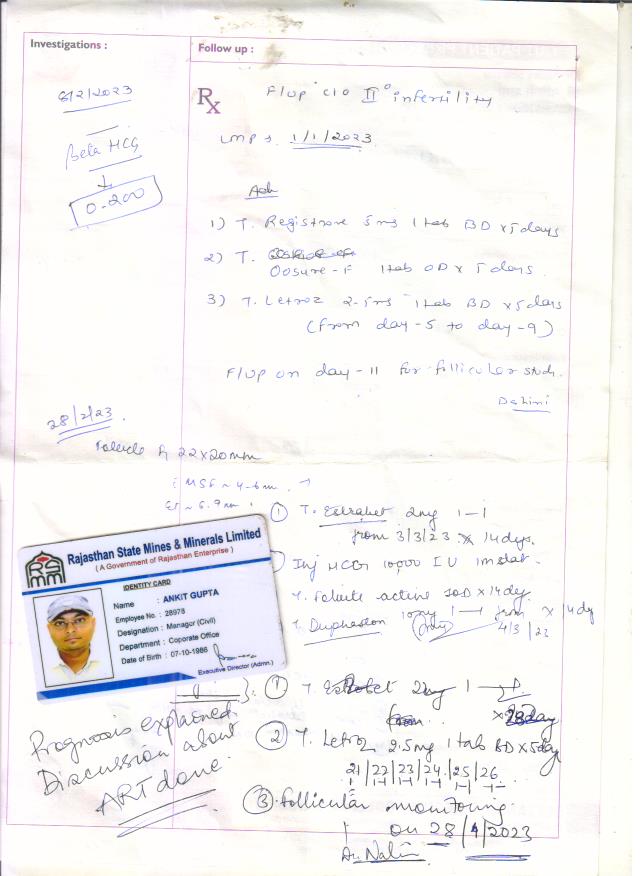 Investigations :
Follow up :
8/2/2023
Beta HCG
0.200
Rx
F/up c/o II° infertility
LMP 1/1/2023
Adv
1) T. Registrone 5mg 1tab BD x 5 days
2) T.
Oosure-F 1tab OD x 5 days.
3) T. Letroz 2.5mg 1tab BD x 5days
(from day-5 to day-9)
F/up on day-11 for follicular study.
28/2/23.
22x20mm
① T. Estrabet 2mg 1-1
from 3/3/23 x 14 dys.
Inj HCG 10,000 IU im stat.
T. Folvite active 1OD x 14 dy.
T. Duphaston 10mg 1-1 from x 14 dy
4/3/23
Rajasthan State Mines & Minerals Limited
( A Government of Rajasthan Enterprise )
RSMM
IDENTITY CARD
Name : ANKIT GUPTA
Employee No. : 28978
Designation : Manager (Civil)
Department : Coporate Office
Date of Birth : 07-10-1986
Executive Director (Admn.)
① T. 2mg 1
② T. Letroz 2.5mg 1tab BD x 5day
21/22/23/24/25/26
③ Follicular monitoring
on 28/4/2023
Dr. Nalini
Prognosis explained.
Discussion about
ART done.